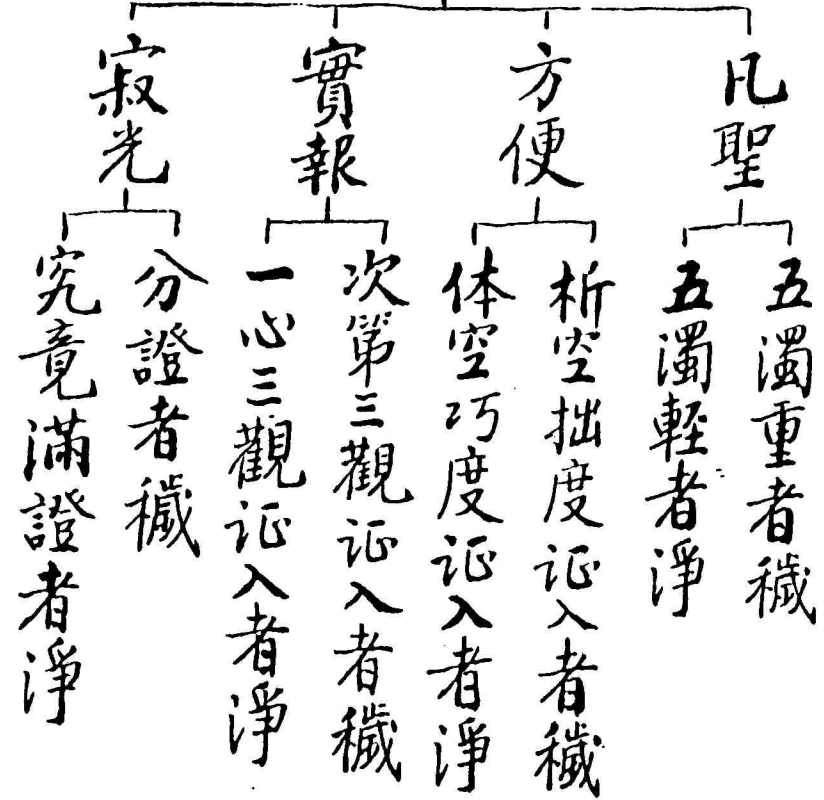 凡聖
五濁重者穢
五濁輕者淨
方便
析空拙度证入者穢
体空巧度证入者淨
實報
次第三觀证入者穢
一心三觀证入者淨
寂光
分證者穢
究竟滿證者淨